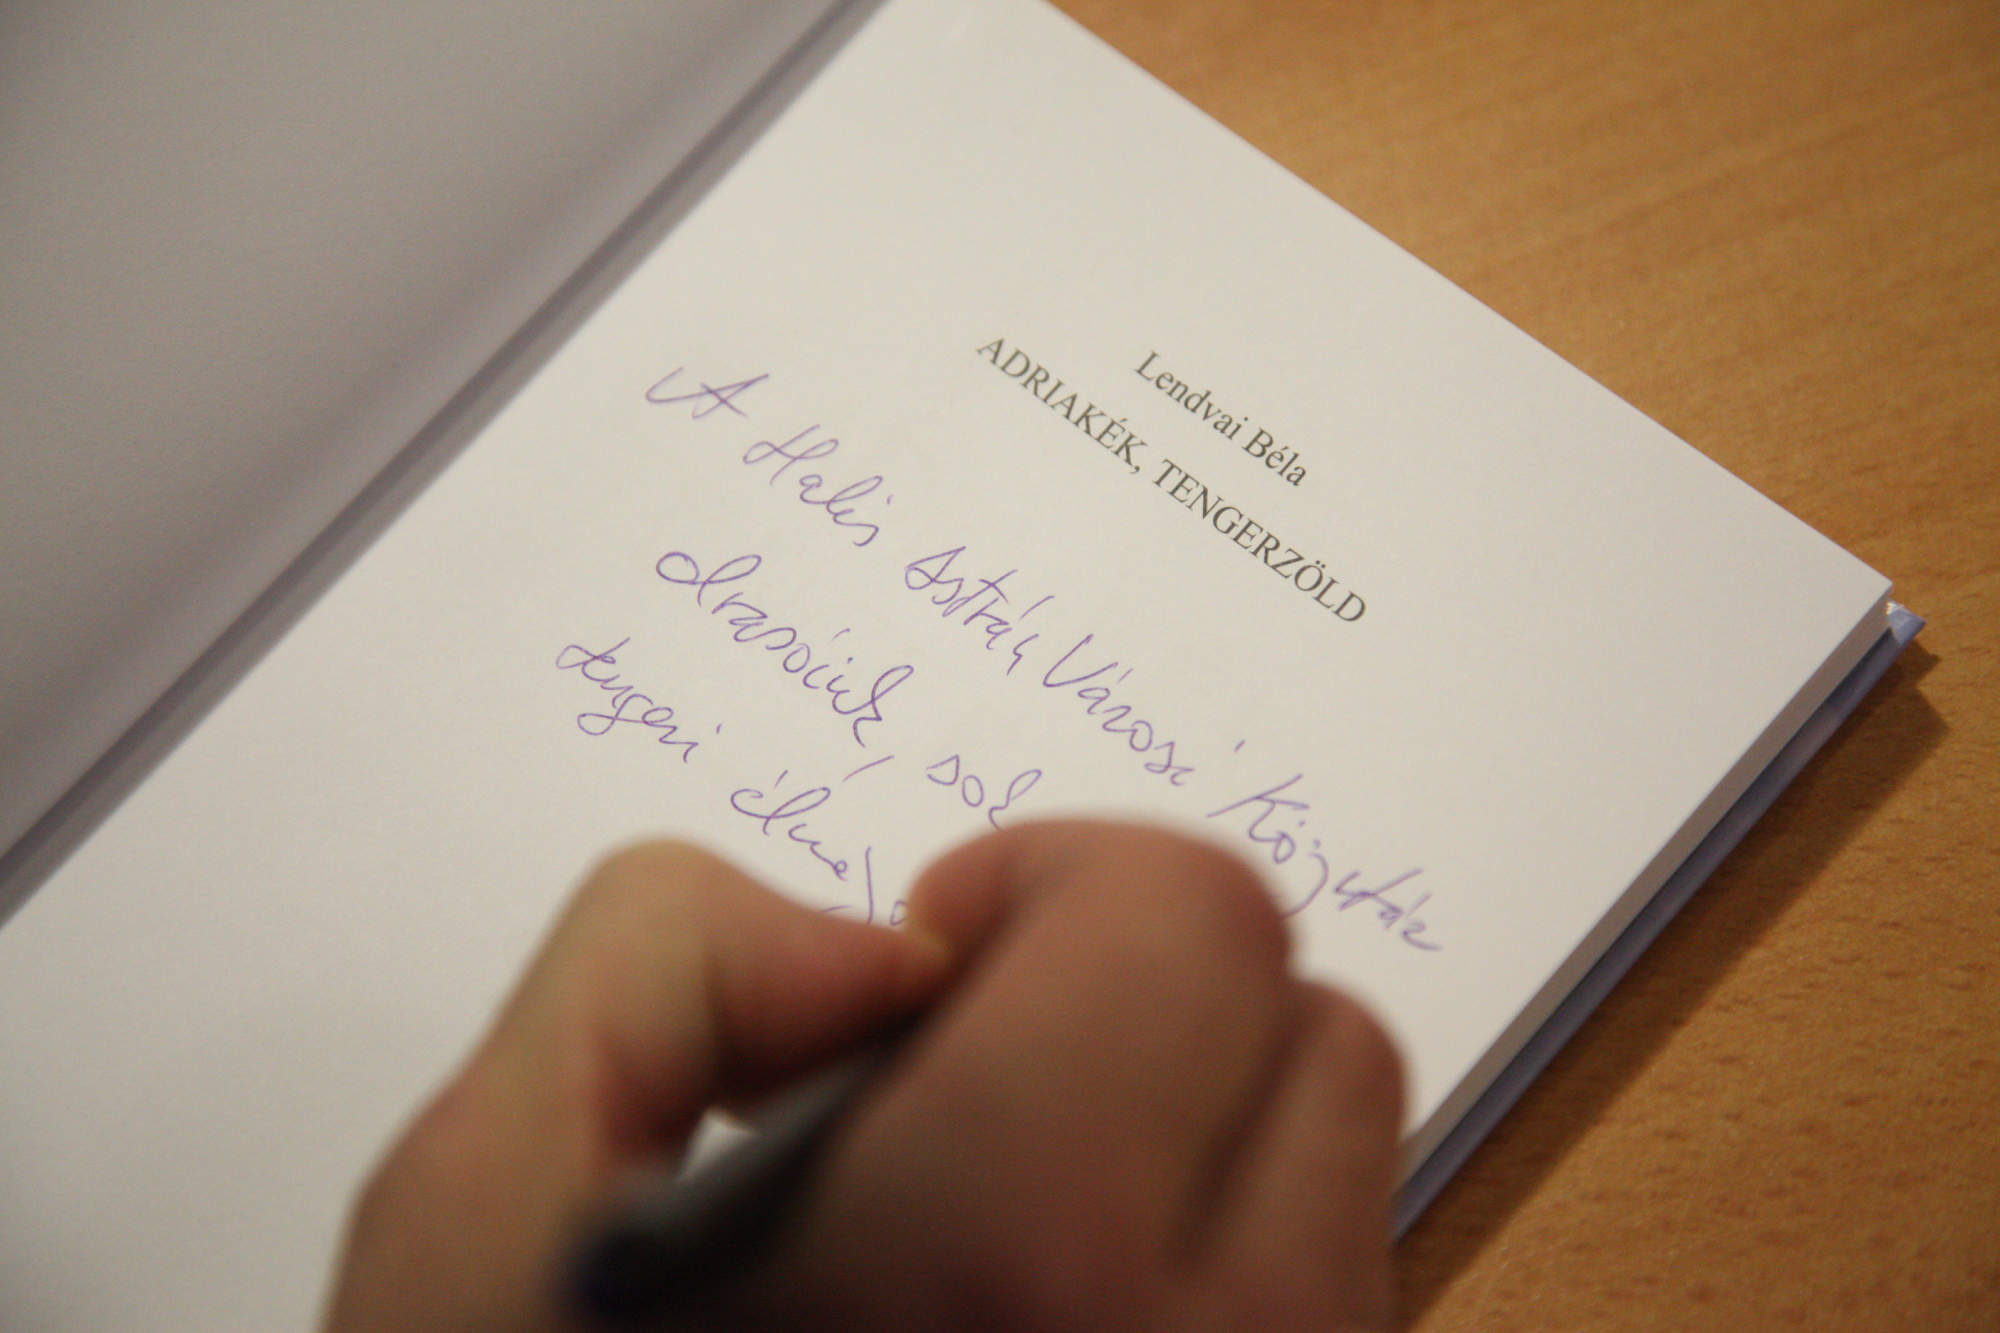 Lendvai Béla
ADRIAKÉK, TENGERZÖLD
A Halis István Városi Könyvtár
olvasóinak, sok
tengeri élmé